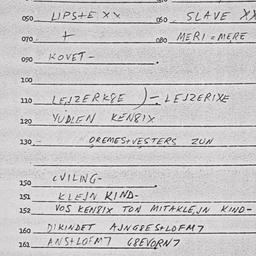 050 LIPS+E XX 060 SLAVE XX
070 + 080 MERI = MERE
090 KOVET-
100
110 LEJZERK8E ) - LEJZERIXE
120 YUDLEN KEN8IX
130 QREMES+VESTERS ZUN
150 CVILING-
151 KLEJN KIND-
152 VOS KEN8IX TON MITAKLEJN KIND-
160 DIKINDET AJNG8ES+LOFM7
161 ANS+LOFM7 G8EVORN7